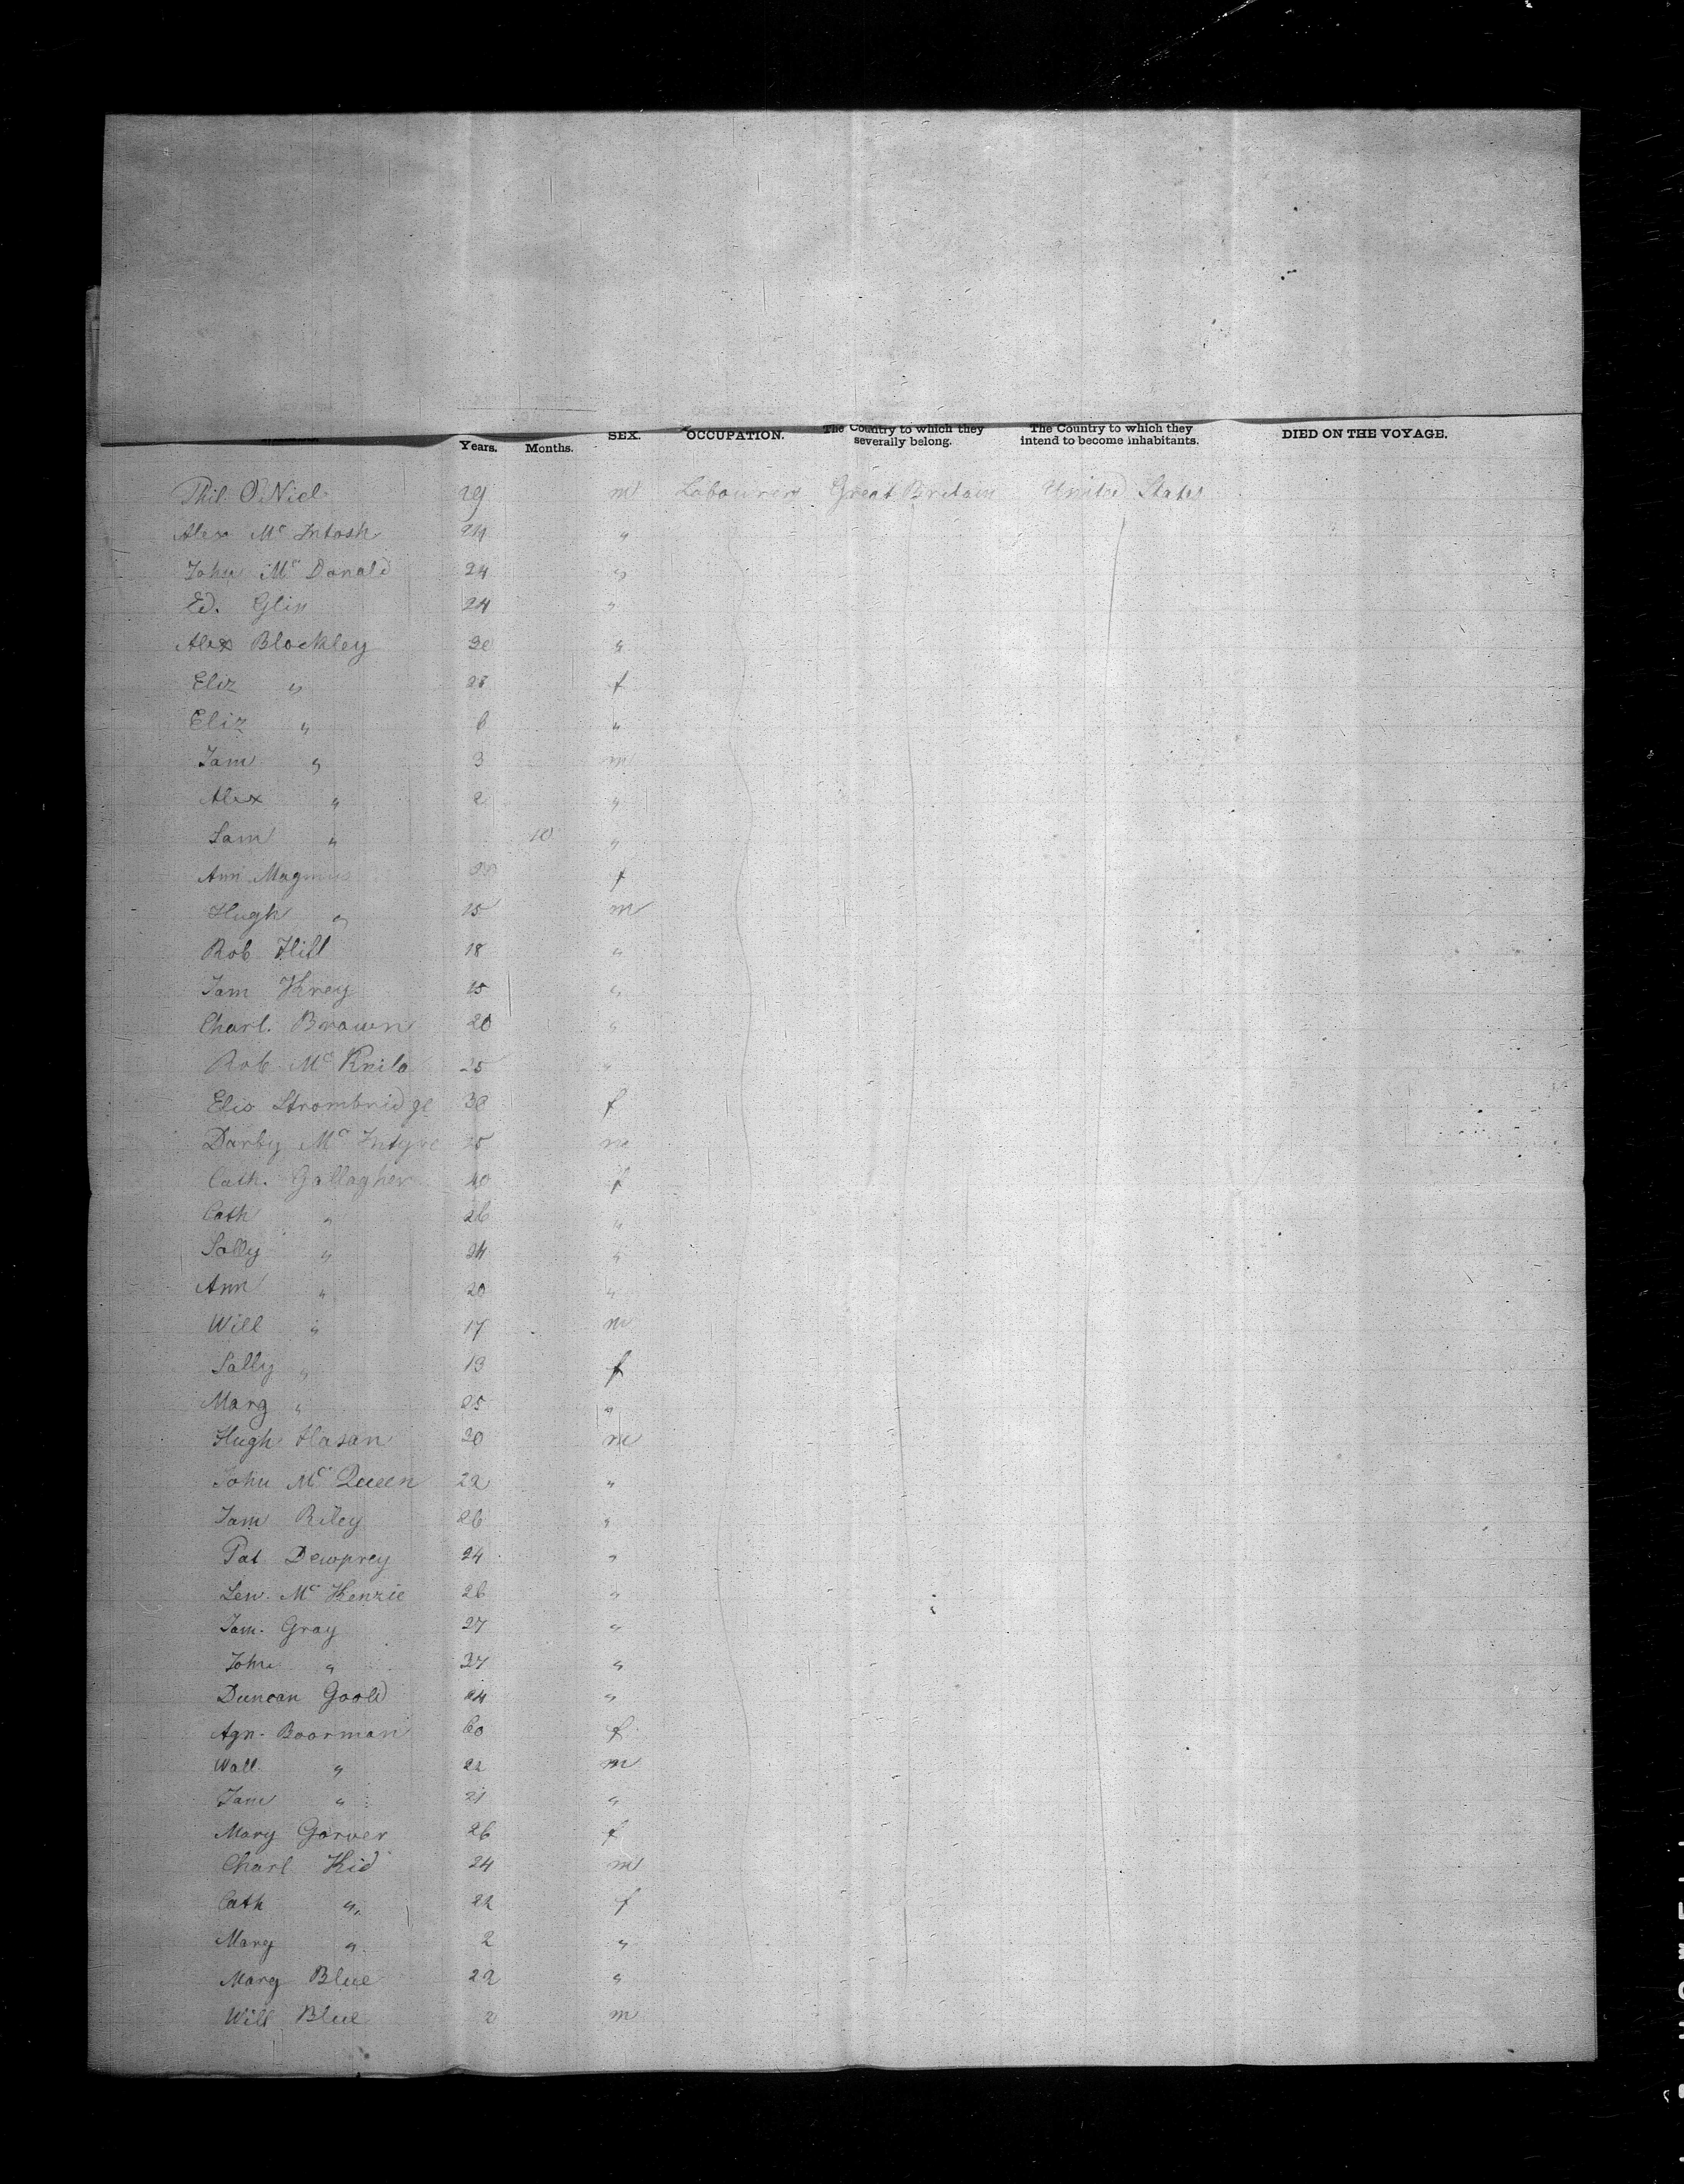 Years. Months. SEX. OCCUPATION. The Country to which they severally belong. The Country to which they intend to become inhabitants. DIED ON THE VOYAGE.
Phil. O'Niel 29 m Labourers Great Britain United States
Alex Mc Intosh 24 "
John Mc Donald 24 "
Ed. Glin 24 "
Alex Blockley 30 "
Eliz " 28 f
Eliz " 6 "
Jam " 3 m
Alex " 2 "
Sam " 10 "
Ann f
Hugh " 15 m
Rob Hill 18 "
Jam Krey 15 "
Charl. Brown 20 "
Rob Mc 25 "
Elis Strombridge 30 f
Darby Mc Intyre 25 m
Cath. Gallagher 40 f
Cath " 26 "
Sally " 24 "
Ann " 20 "
Will " 17 m
Sally " 13 f
Marg " 25 "
Hugh Hasan 20 m
John Mc Queen 22 "
Jam Riley 26 "
Pat Dewprey 24 "
Lew. Mc Kenzie 26 "
Jam. Gray 27 "
John " 37 "
Duncan Goold 24 "
Agn. Boorman 60 f
Wall. " 22 m
Jam " 21 "
Mary Garver 26 f
Charl Kid 24 m
Cath " 22 f
Marg " 2 "
Marg Blue 22 "
Will Blue 2 m